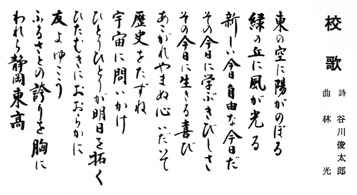 校歌
詩 谷川俊太郎
曲 林光
東の空に陽がのぼる
緑の丘に風が光る
新しい今日自由な今日だ
その今日に学ぶきびしさ
その今日に生きる喜び
あこがれやまぬ心いだいて
歴史をたずね
宇宙に問いかけ
ひとりひとりが明日を拓く
ひたむきにおおらかに
友よゆこう
ふるさとの誇りを胸に
われら静岡東高